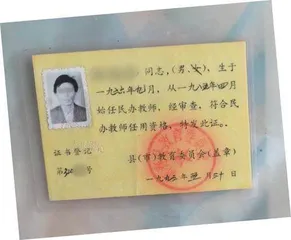 同志,(男、女),生于
一九六六年九月,从一九八五年四月
始任民办教师,经审查,符合民
办教师任用资格,特发此证。
证书登记
第 号
县(市)教育委员会(盖章)
一九九三年 月三十日